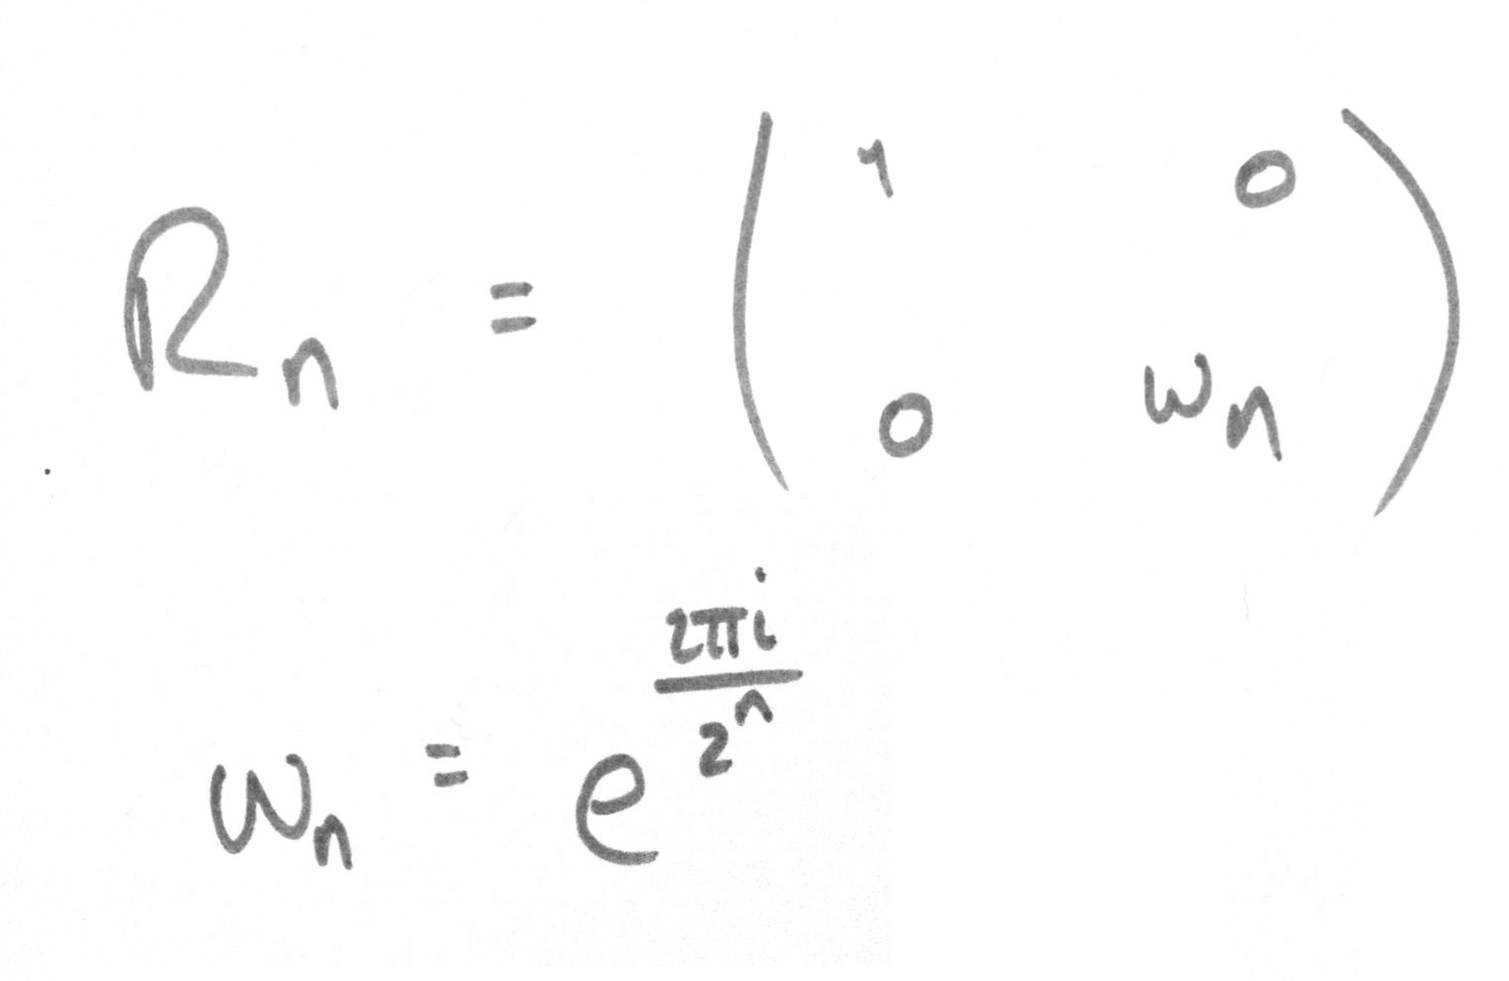 R_n = \begin{pmatrix} 1 & 0 \\ 0 & ω_n \end{pmatrix}
ω_n = e^{\frac{2πi}{2^n}}